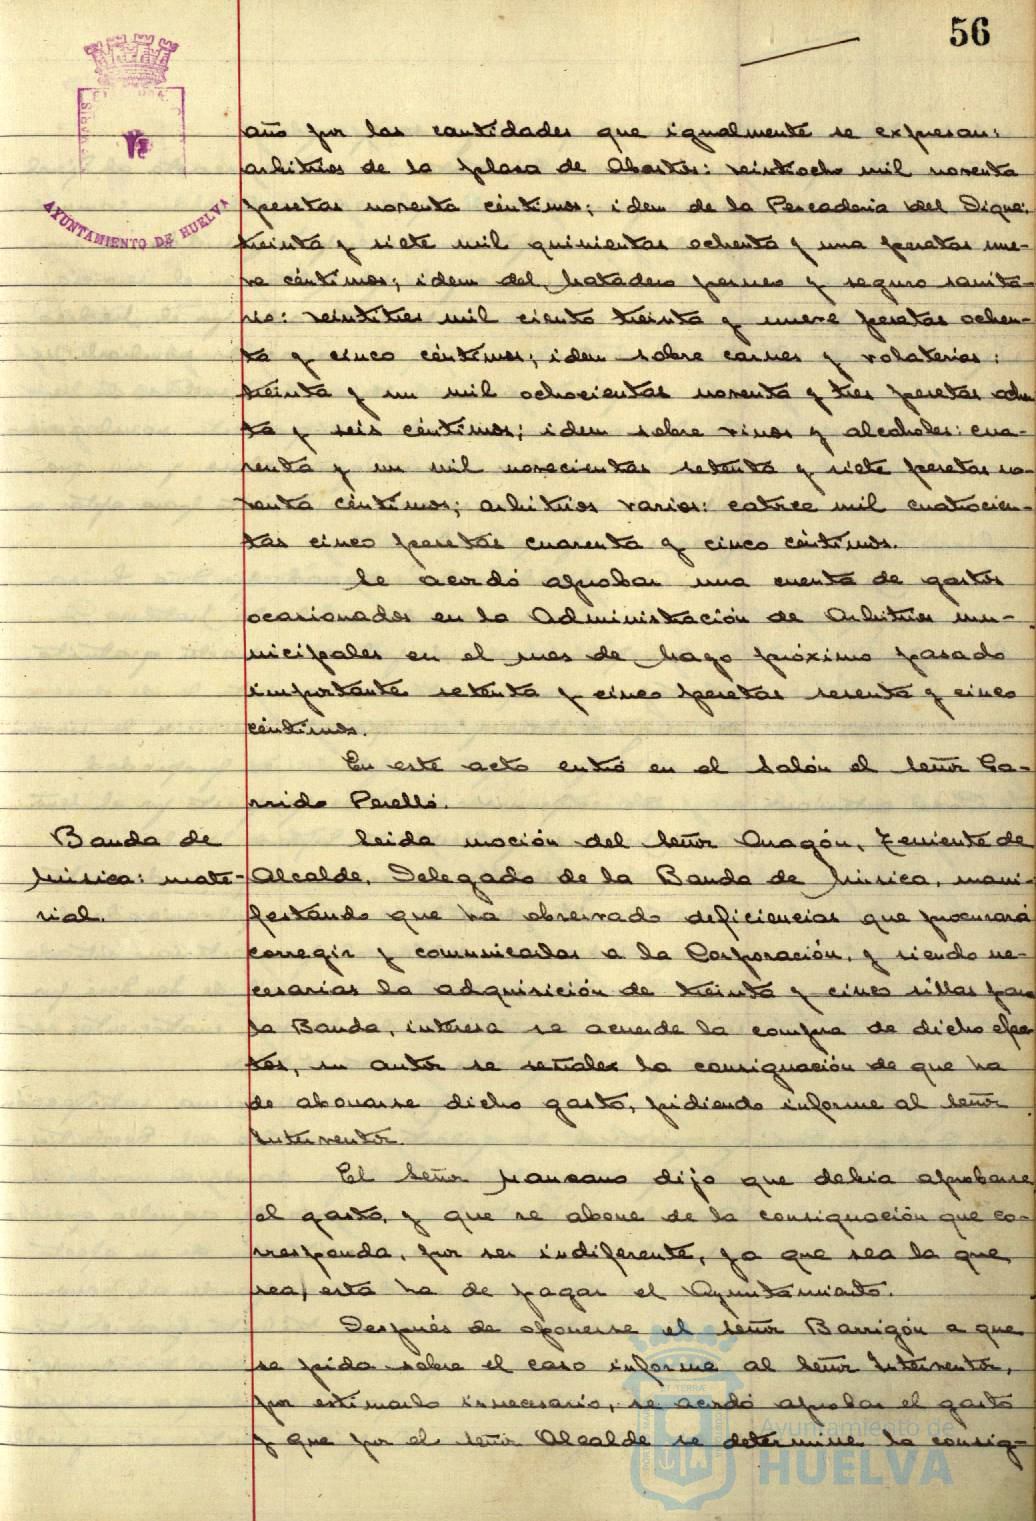 56
AYUNTAMIENTO DE HUELVA
año por las cantidades que igualmente se expresan:
arbitrios de la plaza de Abastos: veintiocho mil noventa
pesetas noventa céntimos; idem de la Pescaderia del Dique:
treinta y siete mil quinientas ochenta y una pesetas nue-
ve céntimos; idem del Matadero persneo y seguro sanita-
rio: veintitres mil ciento treinta y nueve pesetas ochen-
ta y cinco céntimos; idem sobre carnes y volaterias:
treinta y un mil ochocientas noventa y tres pesetas ochen
ta y seis céntimos; idem sobre vinos y alcoholes: cua-
renta y un mil novecientas setenta y siete pesetas no-
venta céntimos; arbitrios varios: catorce mil cuatrocien-
tas cinco pesetas cuarenta y cinco céntimos.
Se acordó aprobar una cuenta de gastos
ocasionados en la Administración de Arbitrios mu-
nicipales en el mes de Mayo próximo pasado
importante setenta y cinco pesetas sesenta y cinco
céntimos.
En este acto entró en el Salón el Señor Ga-
rrido Perelló.
Banda de
Música: mate-
rial.
Leida moción del Señor Aragón, Teniente de
Alcalde, Delegado de la Banda de Música, mani-
festando que ha observado deficiencias que procurará
corregir y comunicarlas a la Corporación, y siendo ne-
cesarias la adquisición de treinta y cinco sillas para
la Banda, interesa se acuerde la compra de dicho efec-
tos, su autor se señales la consignación de que ha
de abonarse dicho gasto, pidiendo informe al Señor
Interventor.
El Señor Manzano dijo que debia aprobarse
el gasto, y que se abone de la consignación que co-
rresponda, por ser indiferente, ya que sea la que
sea, esta ha de pagar el Ayuntamiento.
Después de oponerse el Señor Barrigón a que
se pida sobre el caso informe al Señor Interventor,
por estimarlo innecesario, se acordó aprobar el gasto
y que por el Señor Alcalde se determine la consig-
Ayuntamiento de
HUELVA